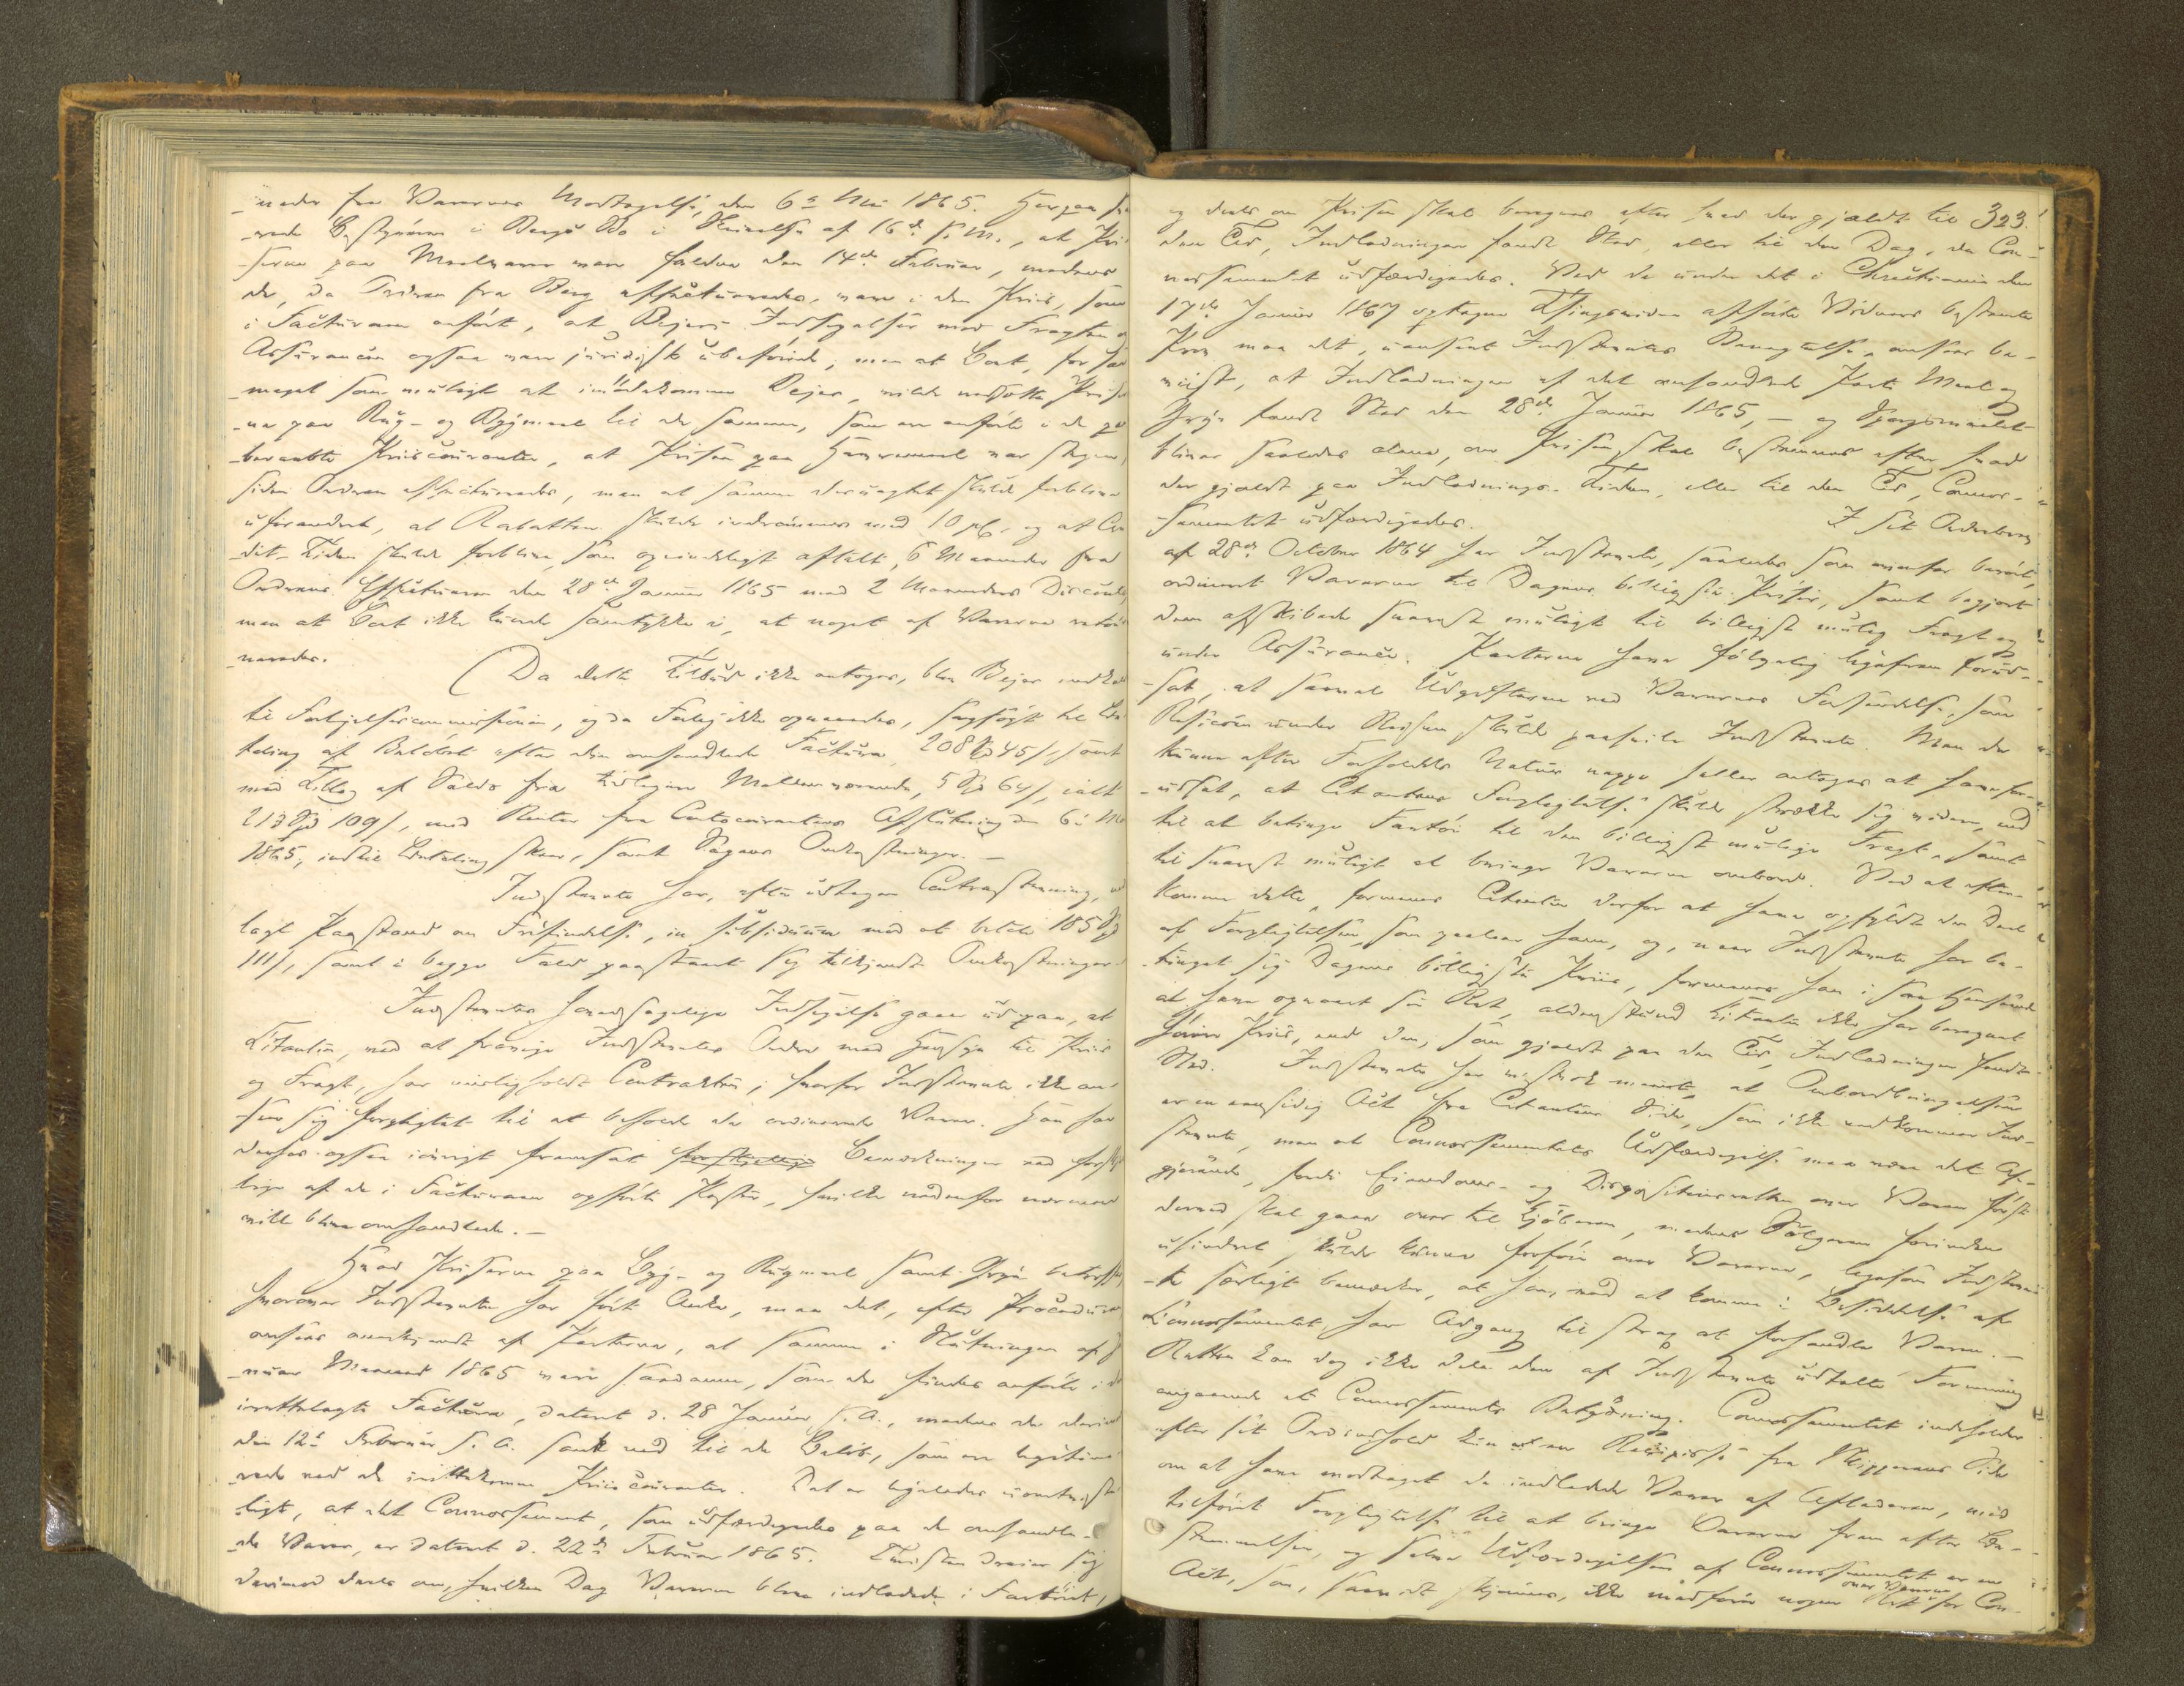 neder fra Varernes Modtagelse, den 6te Mai 1865. Herpaa
i Skrivelse af 16de s. M., at Pri-
serne paa Meelvarer vare faldne den 14de Februar, medens
de, da Ordren fra Berg effectueredes, vare i den Priis, som
i Facturaen anført, at Bejers Indsigelser mod Fragten og
Assurancen ogsaa vare juridisk ubeføiede, men at Berg, for saa
meget som muligt at imødekomme Bejer, vilde nedsætte Priser-
ne paa Rug- og Bygmeel til de samme, som ere anførte i de paa-
beraabte Priiscouranter, at Prisen paa Havremeel var stegen,
siden Ordren effectueredes, men at samme desuagtet skulde forblive
uforandret, at Rabatten skulde indrømmes med 10 pCt., og at Cre-
dit-Tiden skulde forblive, som oprindeligt aftalt, 6 Maaneder fra
Ordrens Effectueren den 28de Januar 1865 med 2 Maaneders Disconto,
men at Berg ikke kunde samtykke i, at noget af Varerne retour-
neredes.
Da dette Tilbud ikke antoges, blev Bejer indkaldt
til Forligelsescommissionen, og da Forlig ikke opnaaedes, sagsøgt til Be-
taling af Beløbet efter den omhandlede Factura, 208 Spd 45 s, samt
med Tillæg af Saldo fra tidligere Mellemværende, 5 Spd 64 s, ialt
213 Spd 109 s, med Renter fra Contocourantens Afslutning den 6te Mai
1865, indtil Betaling skeer, samt Sagens Omkostninger. —
Indstevnte har, efter udtagen Contrastevning, ned-
lagt Paastand om Frifindelse, in subsidium mod at betale 185 Spd
111 s, samt i begge Fald paastaaet sig tilkjendt Omkostninger.
Indstevntes hovedsagelige Indsigelse gaaer ud paa, at
Citanten, ved at fravige Indstevntes Ordre med Hensyn til Priis
og Fragt, har misligholdt Contrakten, hvorfor Indstevnte ikke an-
seer sig forpligtet til at beholde de ordinerede Varer. Han har
derhos ogsaa iøvrigt fremsat forskjellige Bemærkninger ved forskjel-
lige af de i Facturaen opførte Poster, hvilke nedenfor nærmere
ville blive omhandlede. —
Hvad Priserne paa Byg- og Rugmeel samt Gryn betræffer,
hvorover Indstevnte har ført Anke, maa det, efter Proceduren,
ansees anerkjendt af Parterne, at samme i Slutningen af Ja-
nuar Maaned 1865 vare saadanne, som de findes anførte i den
irettelagte Factura, dateret d. 28 Januar s. A., medens de derimod
den 12te Februar s. A. sank ned til de Beløb, som ere legitime-
rede ved de irettekomne Priiscouranter. Det er ligeledes uomtviste-
ligt, at det Connossement, som udfærdigedes paa de omhandle-
de Varer, er dateret d. 22de Februar 1865. Tvisten dreier sig
derimod deels om, hvilken Dag Varerne bleve indladede i Fartøiet,
323.
og deels om Prisen skal beregnes efter hvad der gjældte til
den Tid, Indladningen fandt Sted, eller til den Dag, da Con-
nossementet udfærdigedes. Ved de under det i Christiania den
17de Januar 1867 optagne Thingsvidne afhørte Vidners bestemte
Prov maa det, uanseet Indstevntes Benægtelse, ansees be-
viist, at Indladningen af det omhandlede Parti Meel og
Gryn fandt Sted den 28de Januar 1865, — og Spørgsmaalet
bliver saaledes alene, om Prisen skal bestemmes efter hvad
der gjældte paa Indladnings-Tiden, eller til den Tid, Connos-
sementet udfærdigedes. I sit Ordrebrev
af 28de October 1864 har Indstevnte, saaledes som ovenfor berørt,
ordineret Varerne til Dagens billigste Priser, samt begjært
dem afskibede snarest muligt til billigst mulig Fragt og
under Assurance. Parterne have følgelig ligefrem forud-
sat, at saavel Udgifterne ved Varernes Forsendelse, som
Risicoen under Reisen, skulde paahvile Indstevnte. Men der
kunne efter Forholdets Natur neppe heller antages at have for-
udsat, at Citantens Forpligtelse skulde strække sig videre, end
til at betinge Fartøi til den billigst mulige Fragt, samt
til snarest muligt at bringe Varerne ombord. Ved at efter-
komme dette, formenes Citanten derfor at have opfyldt den Deel
af Forpligtelsen, som paalaae ham, og, naar Indstevnte har be-
tinget sig Dagens billigste Priis, formenes han i saa Henseende
at have opnaaet sin Ret, aldenstund Citanten ikke har beregnet
høiere Priis, end den, som gjældte paa den Tid, Indladningen fandt
Sted. Indstevnte har vistnok meent, at Ombordbringelsen
er en eensidig Act fra Citantens Side, som ikke vedkommer Ind-
stevnte, men at Connossementets Udfærdigelse maa være det Af-
gjørende, fordi Eiendoms- og Dispositionsretten over Varen først
derved skal gaae over til Kjøberen, medens Sælgeren forinden
uhindret skulde kunne forføie over Varerne, ligesom Indstevn-
te særligt bemærker, at han, ved at komme i Besiddelse af
Connossementet, har Adgang til strax at forhandle Varen. —
Retten kan dog ikke dele den af Indstevnte udtalte Formening
angaaende et Connossements Betydning. Connossementet indeholder
efter sit Ordindhold kun et en Recepisse fra Skipperens Side
om at have modtaget de indladede Varer af Afladeren, med
tilføiet Forpligtelse til at bringe Varerne frem efter Be-
stemmelsen, og selve Udfærdigelsen af Connossementet er en
Act, som, saavidt skjønnes, ikke medfører nogen Ret over Varerne for Con-